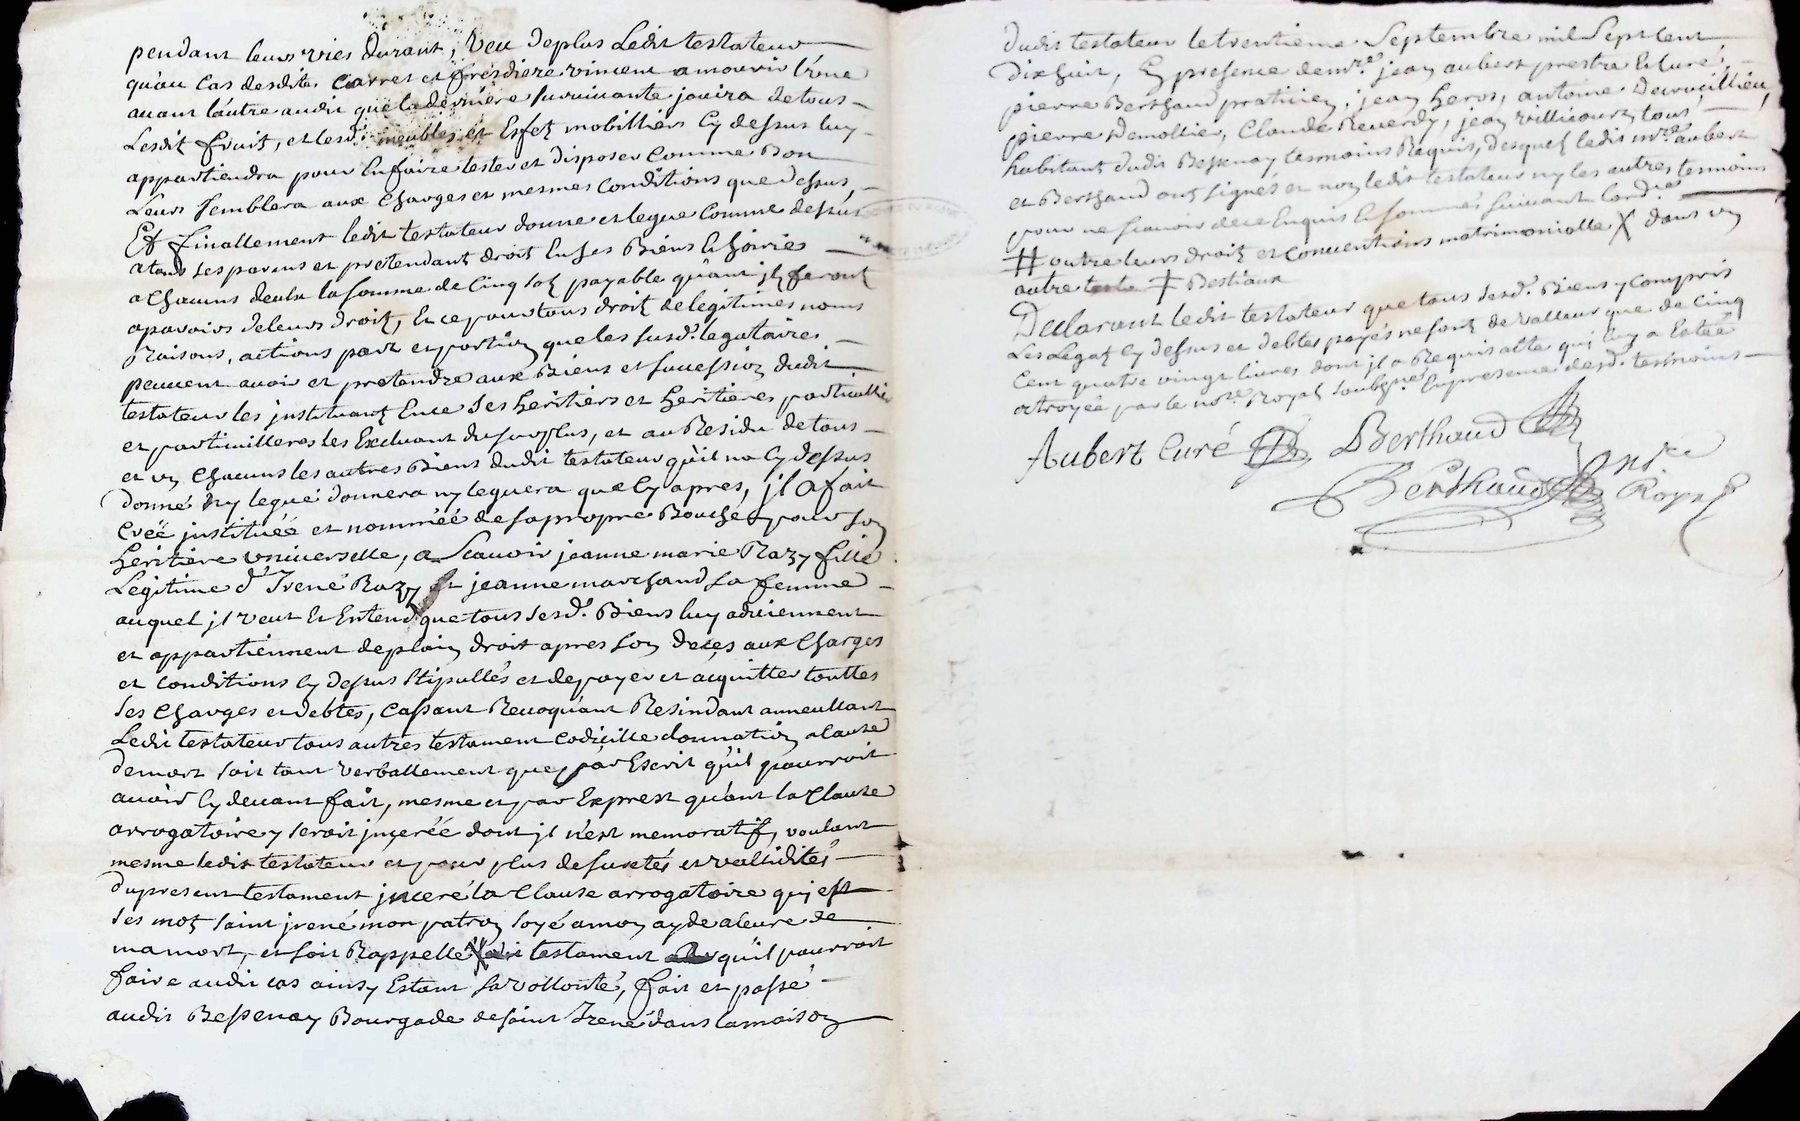 pendant leurs vies durant, veu deplus Ledit testateur
qu'au cas desdites Carret et fresdiere vincent a mourir l'une
auant l'autre audit que la derniere suruiuante jouira de tous
Lesdit fruit, et lesd. meubles et Esfetz mobilliers Cy dessus luy
appartiendra pour En faire tester et disposer Comme Bon
Leurs semblera aux Charges et mesmes Conditions que dessus,
Et finallement ledit testateur donne et legue Comme dessus
a tous ses parens et pretendant droit En ses Biens Et hoiries
a Chacuns deulx la somme de Cinq solz payable quant jlz feront
aparoir de leurs droitz, Et ce pour tous droitz de legitimes noms
Raisons, actions part et portion que les susd. legataires
peuuent auoir et pretendre aux Biens et succession dudit
testateur les justituant En ce ses heritiers et heritieres particulliers
et particullieres les Excluant du surplus, et au Residu de tous
et un Chacuns les autres Biens dudit testateur qu'il na Cy dessus
donné ny legué donnera ny leguera que Cy apres, jl a fait
Creé justituée et nommée de sa propre Bouche pour son
heritiere vniuerselle, a Scauoir jeanne marie Razy fille
Legitime d'Irené Razy et jeanne marchand sa femme
auquel jl veut Et Entend que tous sesd. Biens luy aduiennent
et appartiennent de plain droit apres son deçes aux Charges
et Conditions Cy dessus stipullés et de payer et acquitter touttes
ses Charges et debtes, Cassant Reuoquant Resindant anneullant
Ledit testateur tous autres testament Codicille donnation a Cause
de mort soit tant verballement que par Escrit qu'il pourroit
auoir Cy deuant fait, mesme et par Exprest quant la Clause
arrogatoire y seroit jnçerée dont jl n'est memoratif, voulant
mesme ledit testateur et pour plus de suretés et vallidités
du present testament jnceré la Clause arrogatoire quj est
ses motz saint jrené mon patron soyé a mon ayde a leure de
ma mort, et soit Rappellé X testament qu'il pourroit
faire audit cas ainsy Estant sa vollonté, fait et passé
audit Bessenay Bourgade de saint Irené dans la maison
dudit testateur le trentieme Septembre mil Sept Cent
dix huit, En presence de mre jean aubert prestre Et Curé,
pierre Berthaud praticien, jean heros, antoine
pierre demollier, Claude Reuerdy, jean villicourt tous
habitant dudit Bessenay tesmoins Requis, desquelz ledit mre aubert
et Berthaud ont signés et non ledit testateur ny les autres tesmoins
pour ne scauoir de ce Enquis Et sommés suiuant lord.ce
# outre leurs droitz et Conuentions matrimonialle X dans un
autre ╪ Bestiaux
Declarant ledit testateur que tous sesd. Biens y Compris
Les Legatz Cy dessus et debtes payés ne sont de valleur que de Cinq
Cent quatre vingt liures dont jl a Requis acte quj luy a Estéé
octroyée par le no.re Royal soubzné En presence desd. tesmoins
Aubert Curé Berthaud
Berthaud no.re
Royal